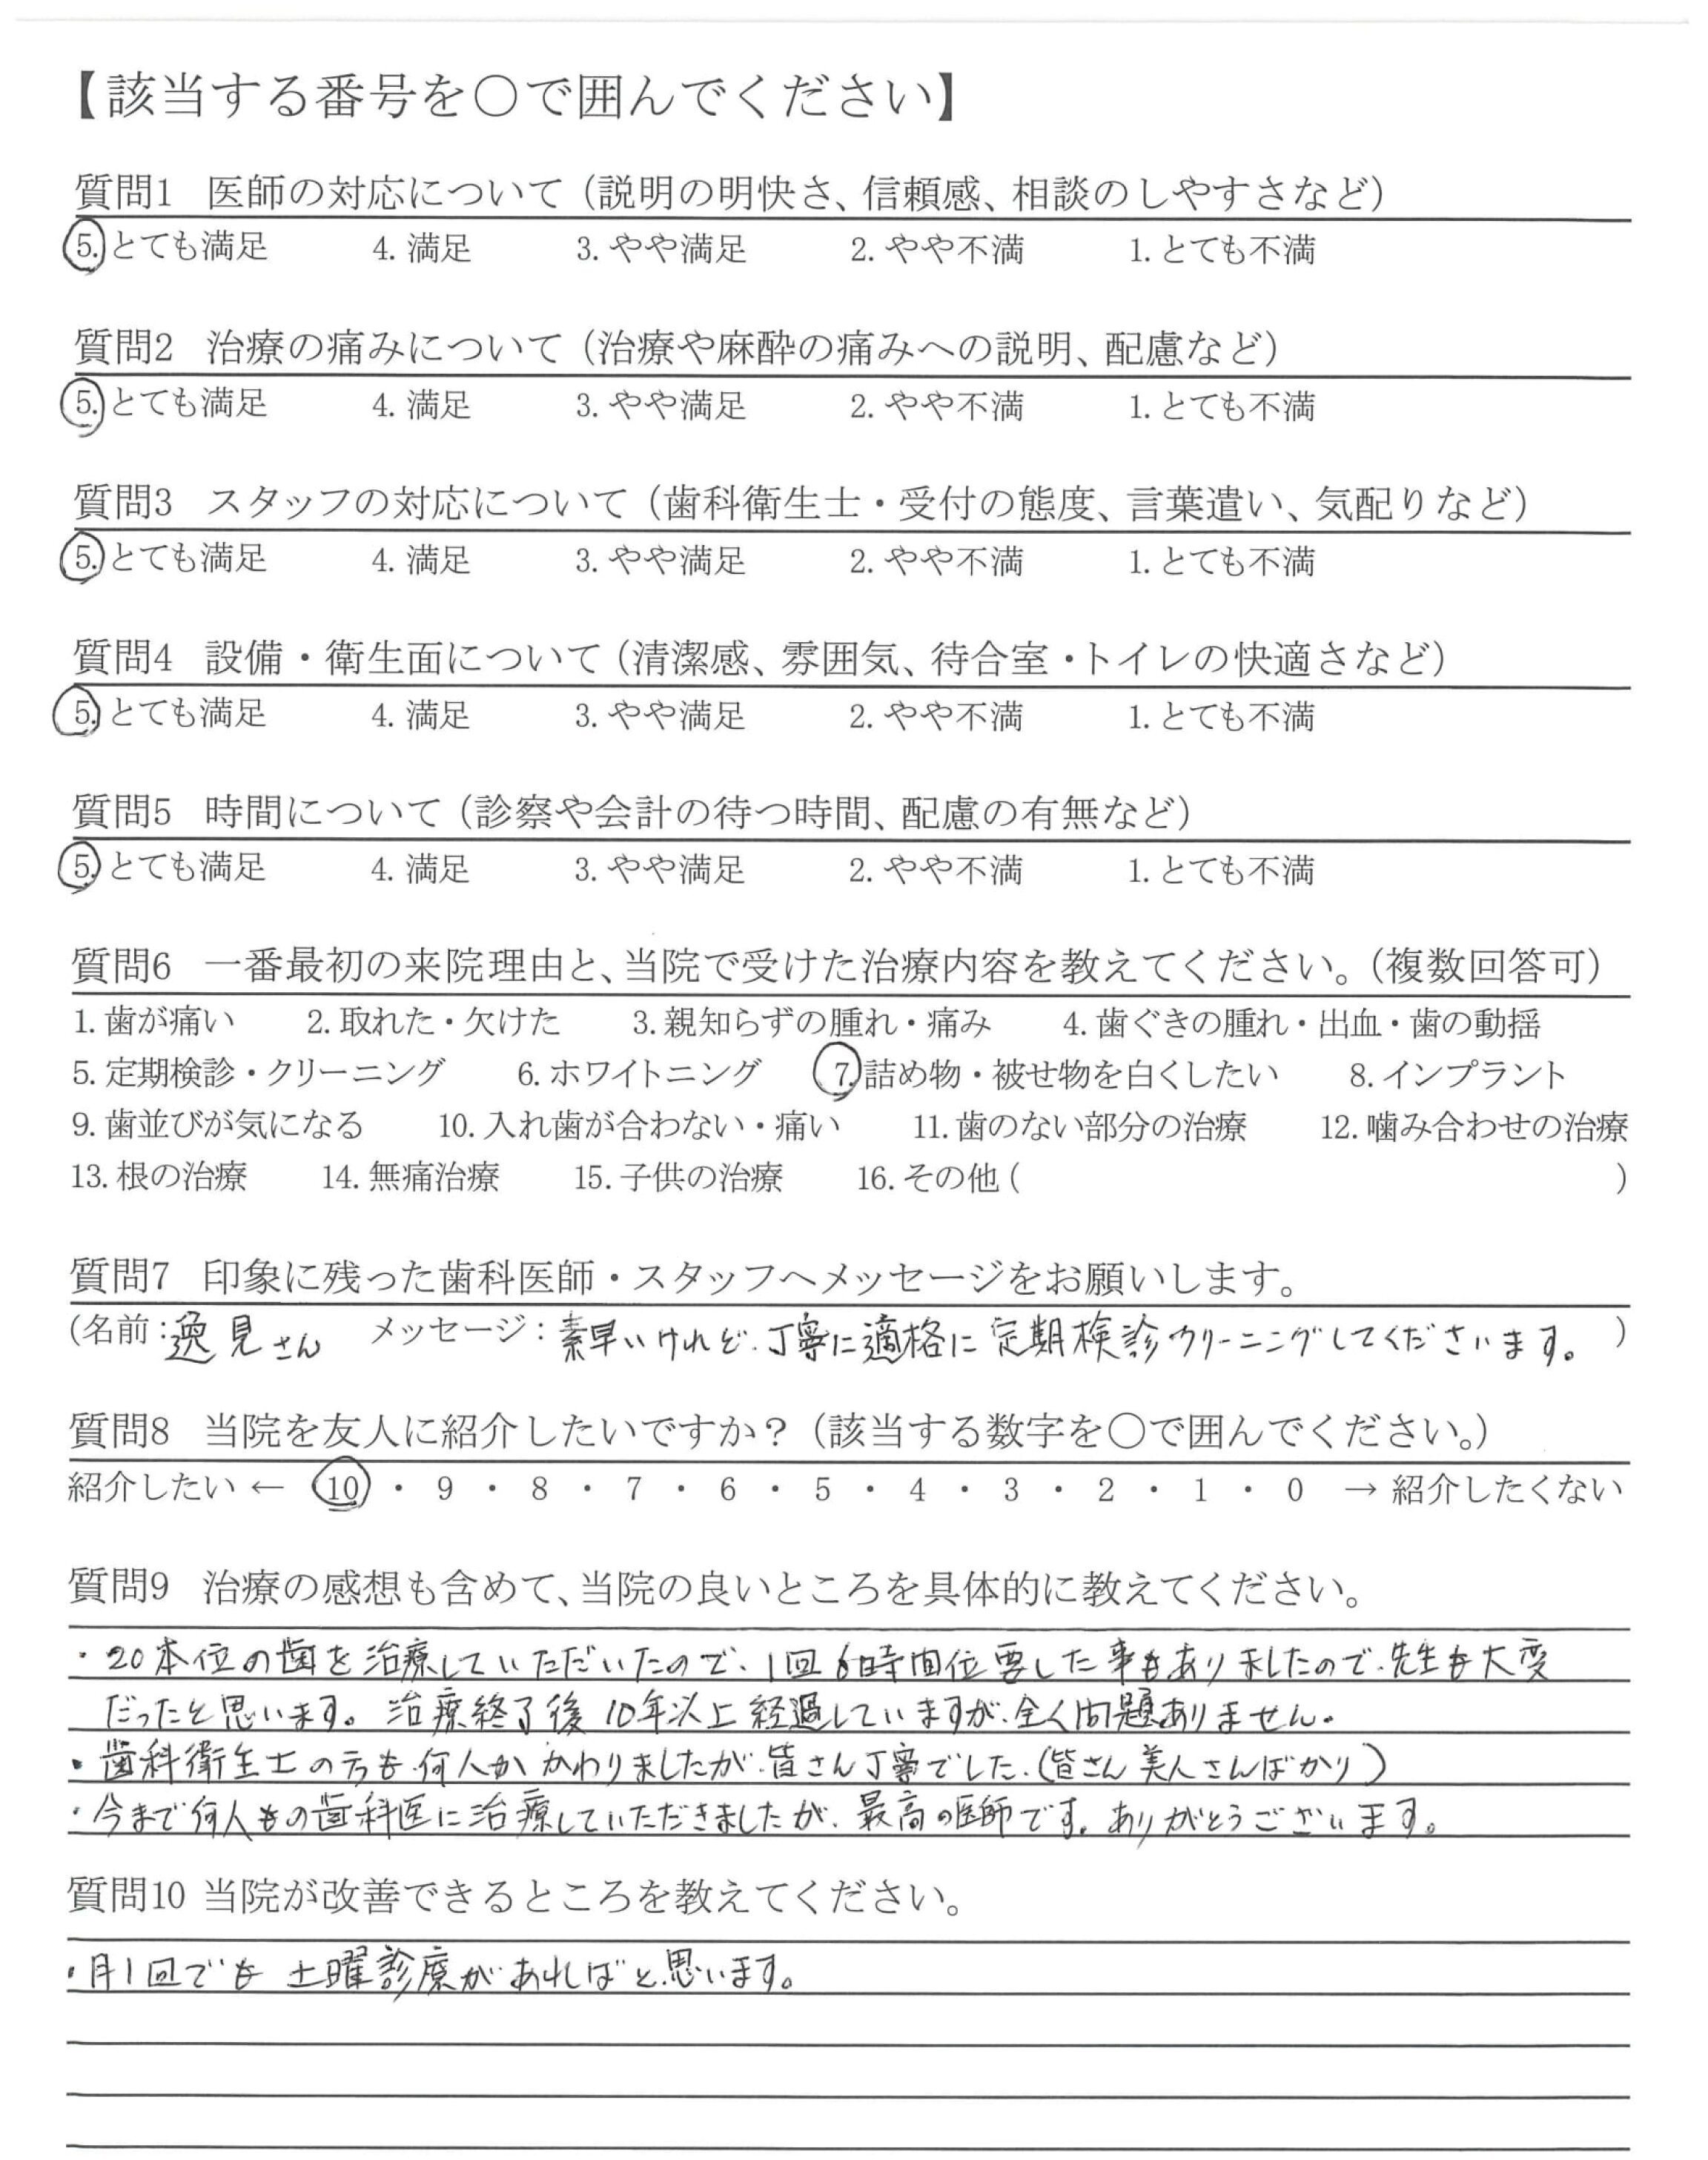 【該当する番号を○で囲んでください】
質問1 医師の対応について（説明の明快さ、信頼感、相談のしやすさなど）
5. とても満足 4. 満足 3. やや満足 2. やや不満 1. とても不満
質問2 治療の痛みについて（治療や麻酔の痛みへの説明、配慮など）
5. とても満足 4. 満足 3. やや満足 2. やや不満 1. とても不満
質問3 スタッフの対応について（歯科衛生士・受付の態度、言葉遣い、気配りなど）
5. とても満足 4. 満足 3. やや満足 2. やや不満 1. とても不満
質問4 設備・衛生面について（清潔感、雰囲気、待合室・トイレの快適さなど）
5. とても満足 4. 満足 3. やや満足 2. やや不満 1. とても不満
質問5 時間について（診察や会計の待つ時間、配慮の有無など）
5. とても満足 4. 満足 3. やや満足 2. やや不満 1. とても不満
質問6 一番最初の来院理由と、当院で受けた治療内容を教えてください。（複数回答可）
1. 歯が痛い 2. 取れた・欠けた 3. 親知らずの腫れ・痛み 4. 歯ぐきの腫れ・出血・歯の動揺
5. 定期検診・クリーニング 6. ホワイトニング 7. 詰め物・被せ物を白くしたい 8. インプラント
9. 歯並びが気になる 10. 入れ歯が合わない・痛い 11. 歯のない部分の治療 12. 噛み合わせの治療
13. 根の治療 14. 無痛治療 15. 子供の治療 16. その他（ ）
質問7 印象に残った歯科医師・スタッフへメッセージをお願いします。
（名前：逸見さん メッセージ：素早いけれど、丁寧に適格に定期検診クリーニングしてくださいます。）
質問8 当院を友人に紹介したいですか？（該当する数字を○で囲んでください。）
紹介したい ← 10 ・ 9 ・ 8 ・ 7 ・ 6 ・ 5 ・ 4 ・ 3 ・ 2 ・ 1 ・ 0 → 紹介したくない
質問9 治療の感想も含めて、当院の良いところを具体的に教えてください。
・20本位の歯を治療していただいたので、1回6時間位要した事もありましたので、先生も大変
だったと思います。治療終了後10年以上経過していますが、全く問題ありません。
・歯科衛生士の方も、何人かかわりましたが、皆さん丁寧でした。（皆さん美人さんばかり）
・今まで何人もの歯科医に治療していただきましたが、最高の医師です。ありがとうございます。
質問10 当院が改善できるところを教えてください。
・月1回でも土曜診療があればと思います。